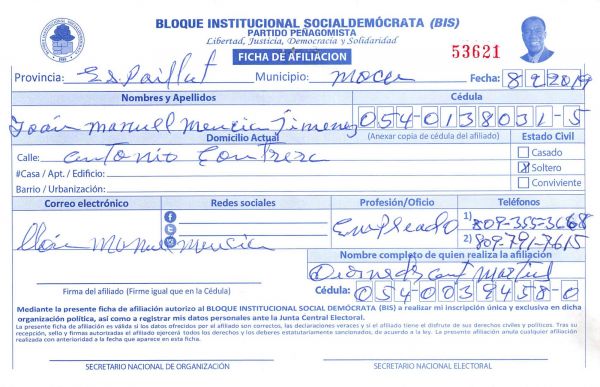 BLOQUE INSTITUCIONAL SOCIALDEMÓCRATA (BIS)
PARTIDO PEÑAGOMISTA
Libertad, Justicia, Democracia y Solidaridad
FICHA DE AFILIACION
53621
Provincia: Espaillat Municipio: Moca Fecha: 8/9/2019
Nombres y Apellidos Cédula
Joán Manuel Mencía Jimenez 054-0138031-5
Domicilio Actual (Anexar copia de cédula del afiliado) Estado Civil
Calle: Antonio Casado
#Casa / Apt. / Edificio: X Soltero
Barrio / Urbanización: Conviviente
Correo electrónico Redes sociales Profesión/Oficio Teléfonos
Manuel Mencia Empleado 1) 809-355-3668
2) 809-791-7615
Nombre completo de quien realiza la afiliación
Firma del afiliado (Firme igual que en la Cédula) Cédula: 054-0039458-0
Mediante la presente ficha de afiliación autorizo al BLOQUE INSTITUCIONAL SOCIAL DEMÓCRATA (BIS) a realizar mi inscripción única y exclusiva en dicha
organización política, así como a registrar mis datos personales ante la Junta Central Electoral.
La presente ficha de afiliación es válida si los datos ofrecidos por el afiliado son correctos, las declaraciones veraces y si el afiliado tiene el disfrute de sus derechos civiles y políticos. Tras su
recepción, sello y firmas autorizadas el afiliado ejercerá todos los derechos y los deberes estatutariamente sancionados, de acuerdo a la ley. La presente afiliación anula cualquier afiliación
realizada con anterioridad a la fecha que aparece en esta ficha.
SECRETARIO NACIONAL DE ORGANIZACIÓN SECRETARIO NACIONAL ELECTORAL